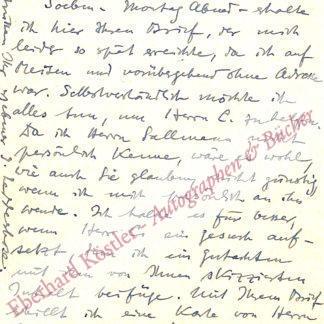 Soeben - Montag Abend - erhalte
ich hier Ihren Brief, der mich
leider so spät erreichte, da ich auf
Reisen und vorübergehend ohne Adresse
war. Selbstverständlich möchte ich
alles tun, um Herrn C. zu
Da ich Herrn Sallmann
persönlich kenne, wäre es wohl,
wie auch Sie glauben, nicht günstig,
wenn ich mich persönlich an ihn
wende. Ich halte es für besser,
wenn Herr ein Gesuch auf-
setzt, ich ein Gutachten
mit dem von Ihnen skizzierten
Inhalt beifüge. Mit Ihrem Brief
erhielt ich eine Karte von Herrn
Eberhard Köstler - Autographen & Bücher